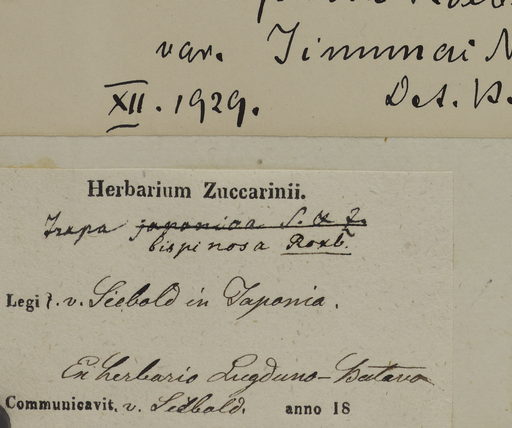 var. Jinumai
XII. 1929. Det.
Herbarium Zuccarinii.
Trapa japonica S. & Z.
bispinosa Roxb.
Legit. v. Siebold in Japonia.
Ex herbario Lugduno-Batavo
Communicavit. v. Siebold. anno 18